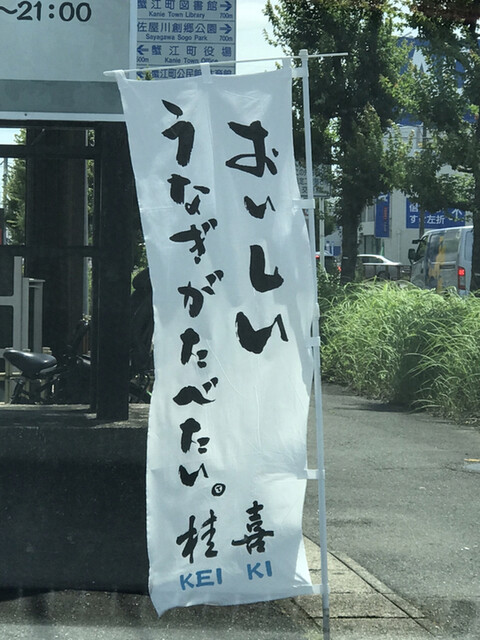 ~21:00
蟹江町図書館
Kanie Town Library
700m
佐屋川創郷公園
Sayagawa Sogo Park
700m
蟹江町役場
Kanie Town Office
おいしい
うなぎがたべたい。
喜
桂
KEI KI
すぐ左折